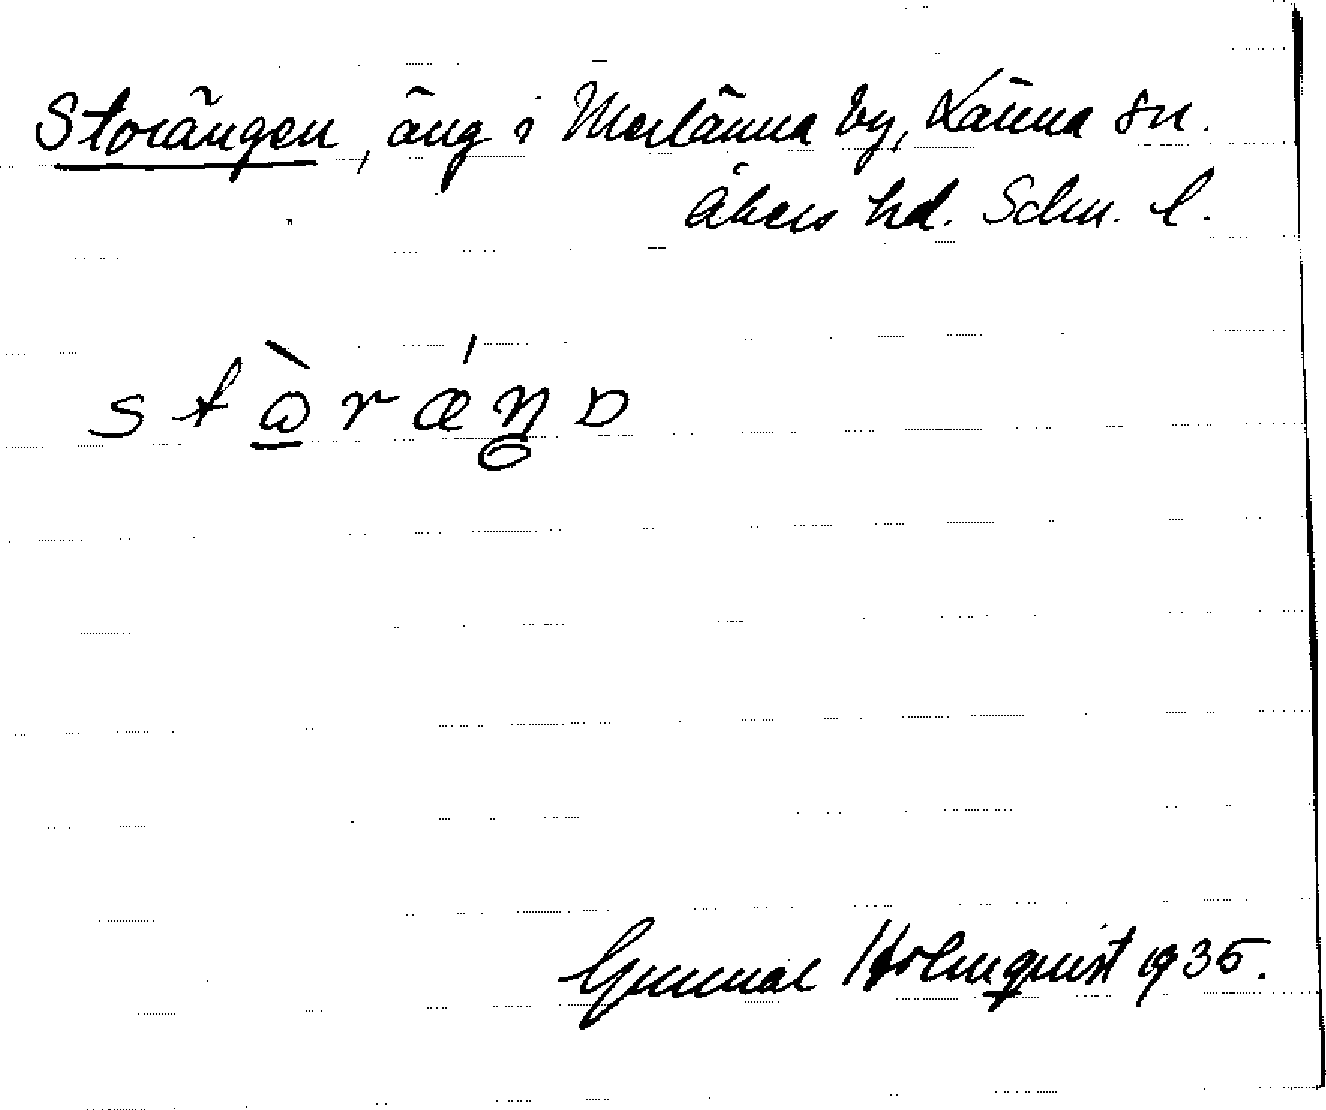 Storängen, äng i Merlänna by, Länna sn.
Åkers hd. Sdm. l.
Gunnar Holmquist 1935.